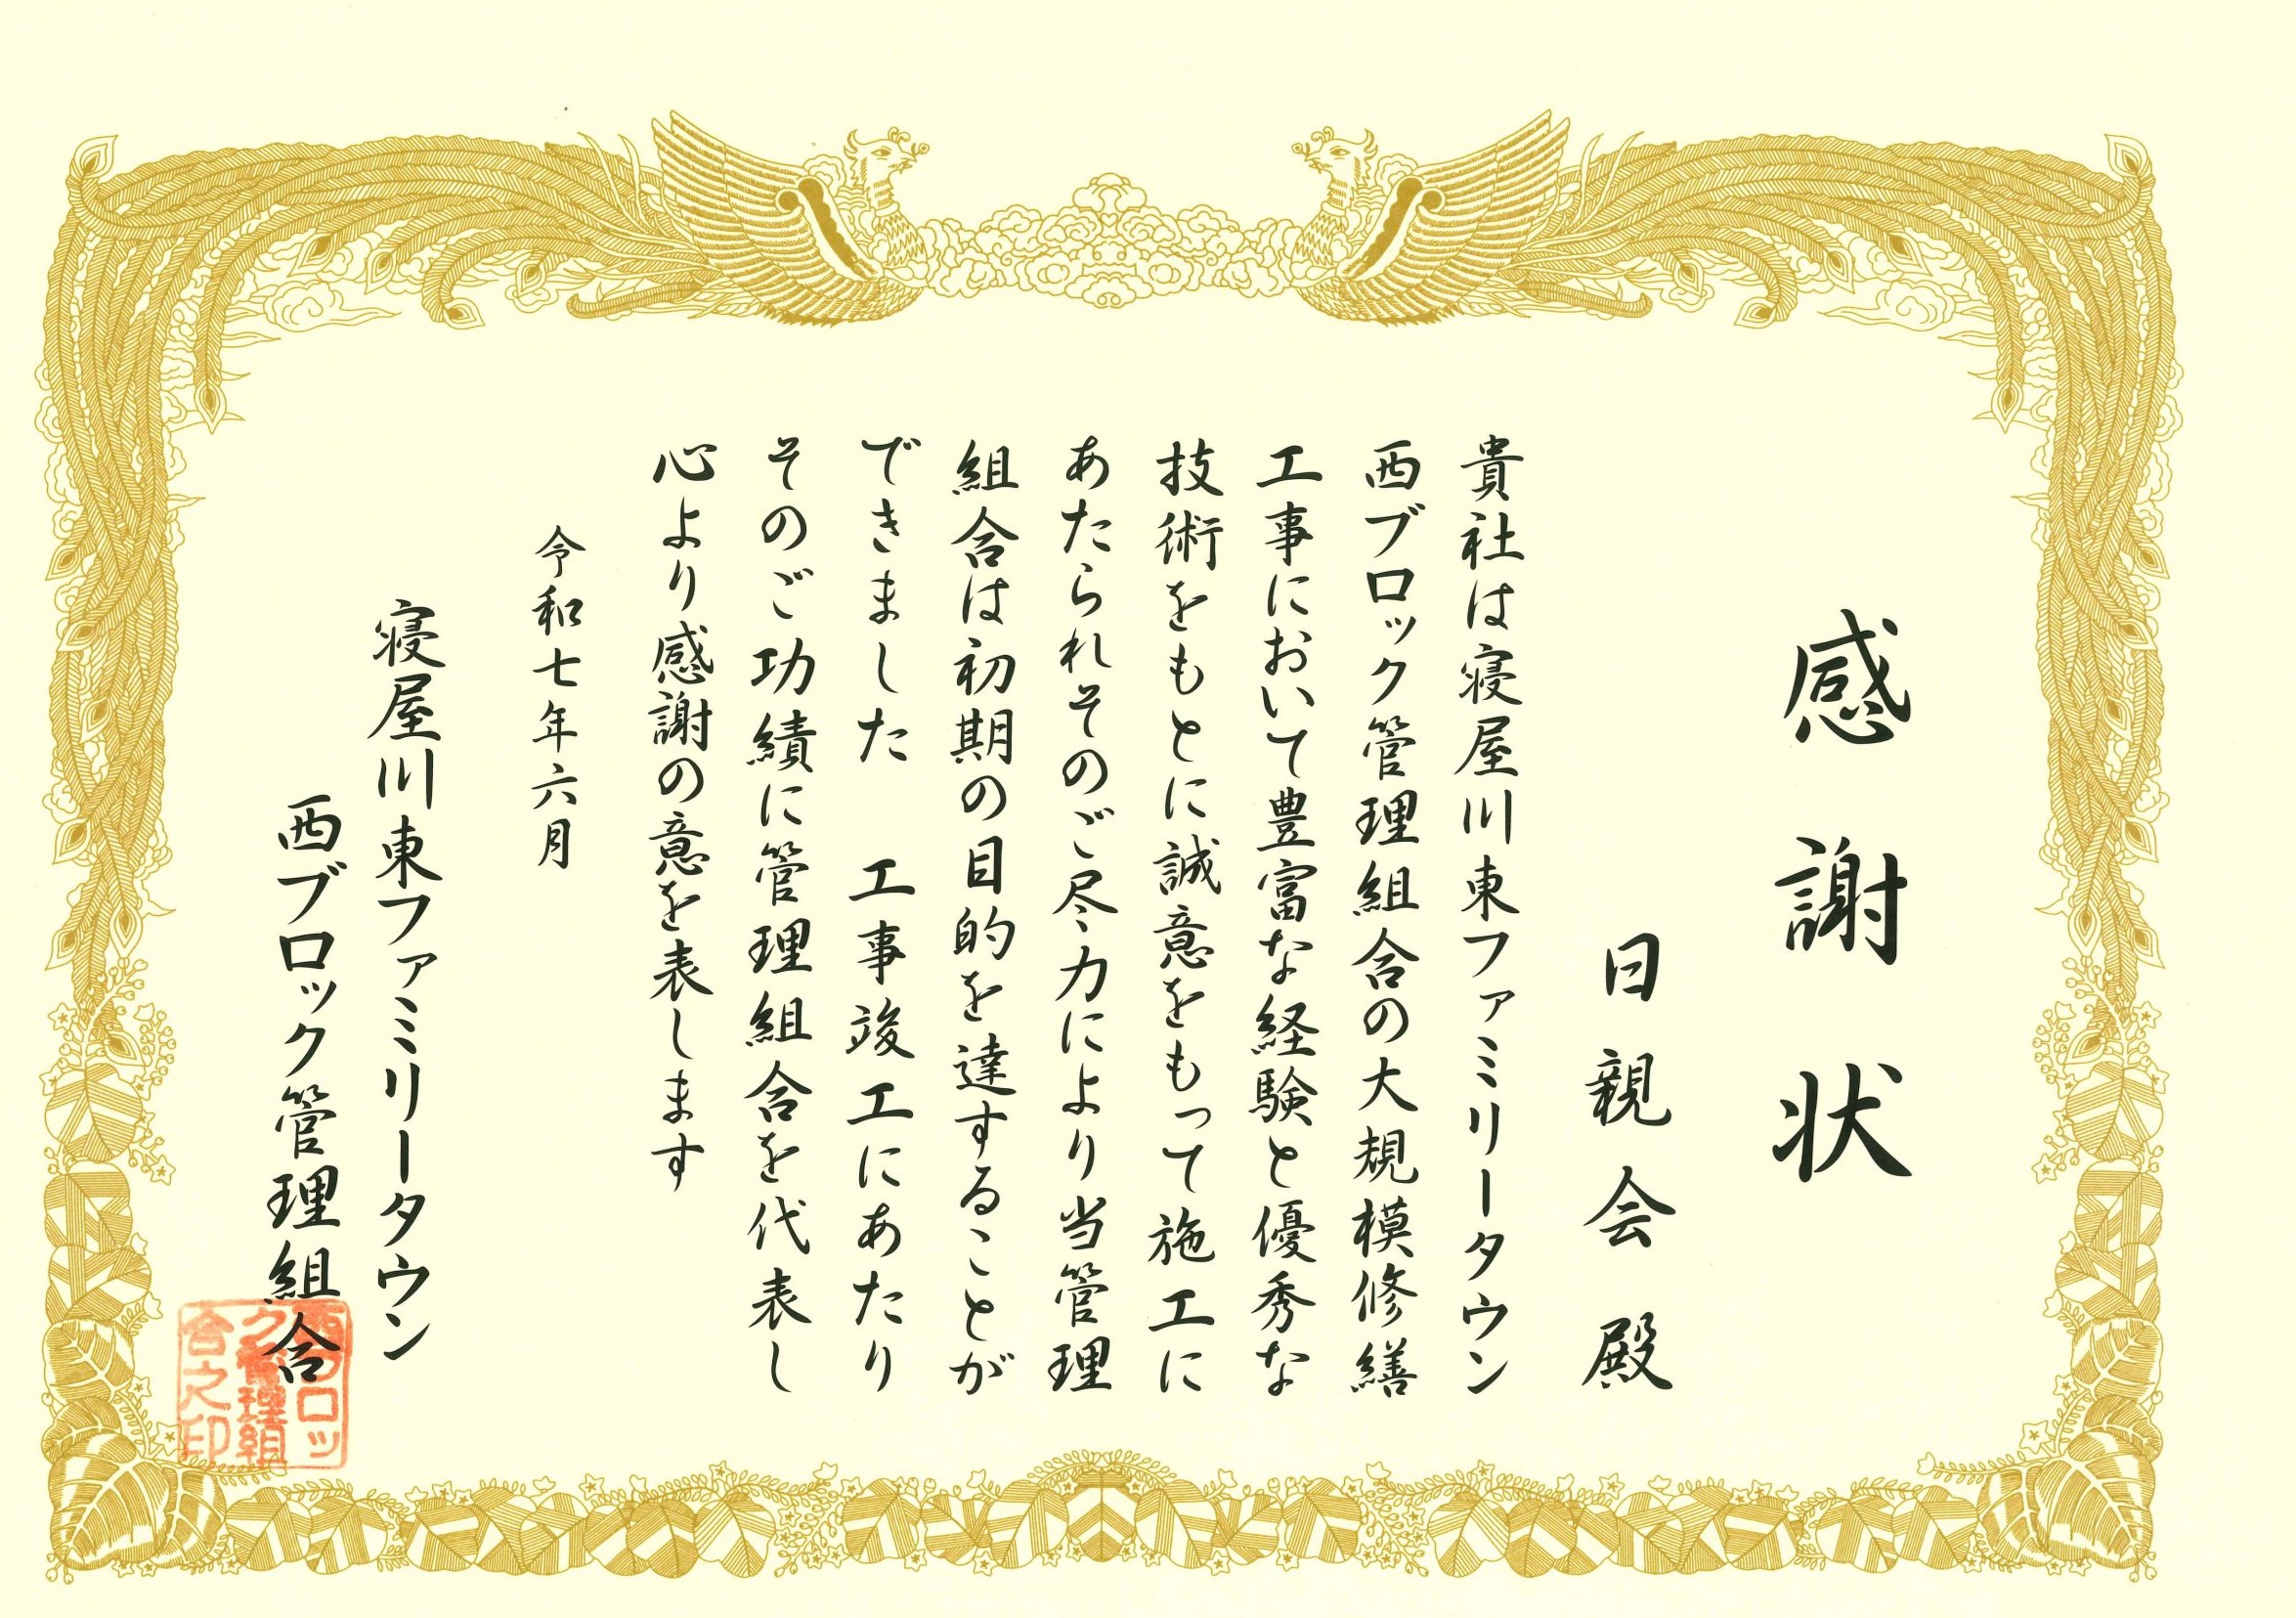 感謝状
日親会 殿
貴社は寝屋川東ファミリータウン
西ブロック管理組合の大規模修繕
工事において豊富な経験と優秀な
技術をもとに誠意をもって施工に
あたられそのご尽力により当管理
組合は初期の目的を達することが
できました 工事竣工にあたり
そのご功績に管理組合を代表し
心より感謝の意を表します
令和七年六月
寝屋川東ファミリータウン
西ブロック管理組合
西ブロッ
ク管理組
合之印